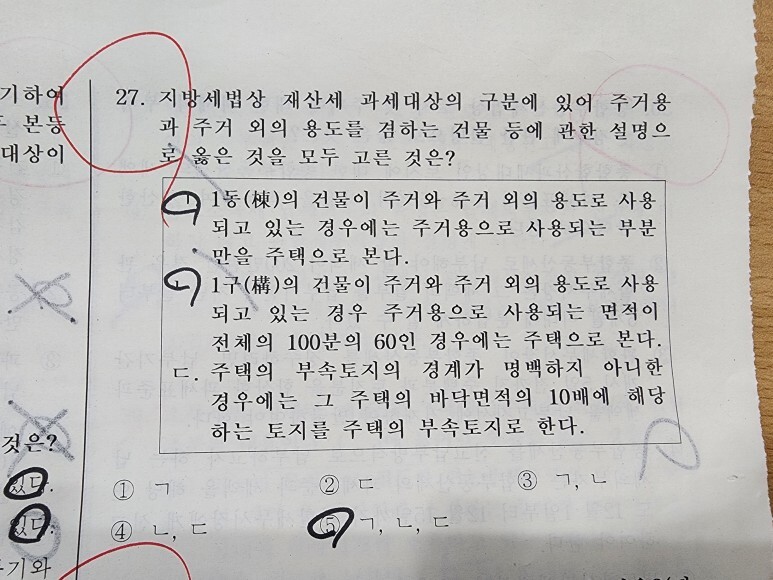 기하여
본등
대상이
것은?
있다.
있다.
기와
27. 지방세법상 재산세 과세대상의 구분에 있어 주거용
과 주거 외의 용도를 겸하는 건물 등에 관한 설명으
로 옳은 것을 모두 고른 것은?
ㄱ. 1동(棟)의 건물이 주거와 주거 외의 용도로 사용
되고 있는 경우에는 주거용으로 사용되는 부분
만을 주택으로 본다.
ㄴ. 1구(構)의 건물이 주거와 주거 외의 용도로 사용
되고 있는 경우 주거용으로 사용되는 면적이
전체의 100분의 60인 경우에는 주택으로 본다.
ㄷ. 주택의 부속토지의 경계가 명백하지 아니한
경우에는 그 주택의 바닥면적의 10배에 해당
하는 토지를 주택의 부속토지로 한다.
① ㄱ ② ㄷ ③ ㄱ, ㄴ
④ ㄴ, ㄷ ⑤ ㄱ, ㄴ, ㄷ